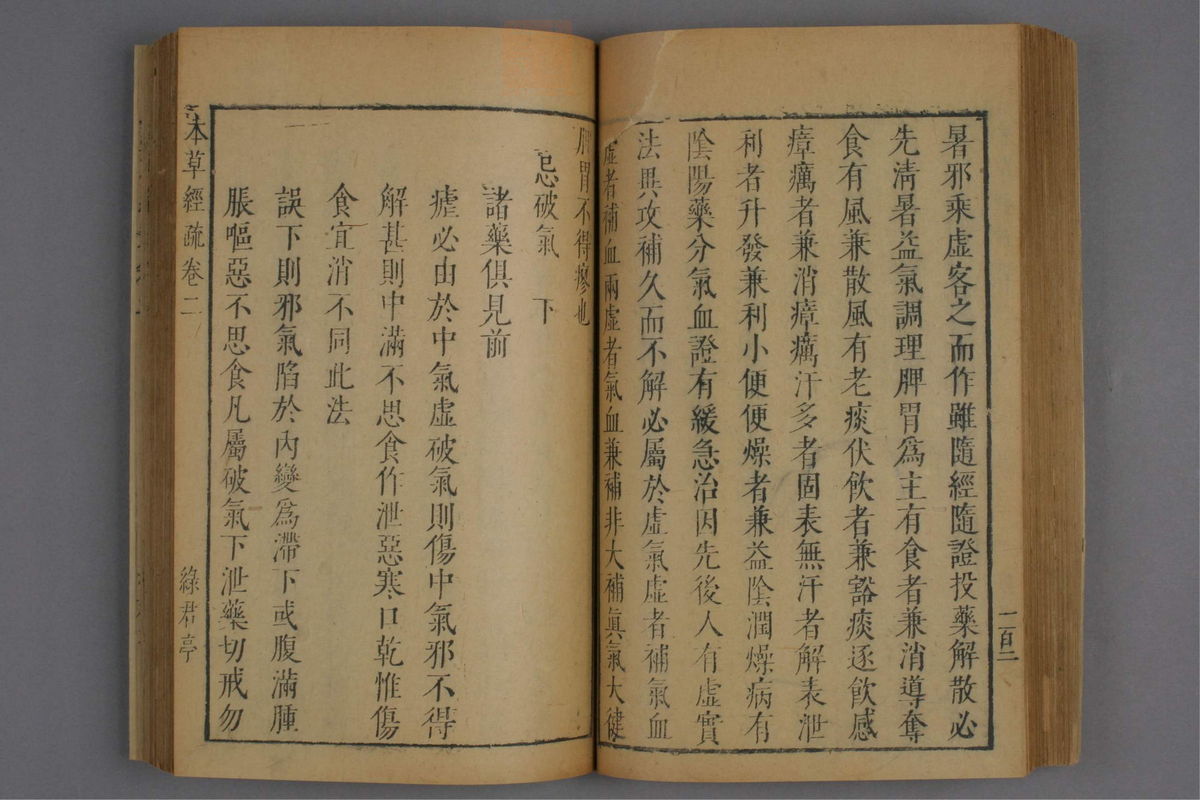 暑邪乘虛客之而作雖隨經隨證投藥解散必
先淸暑益氣調理脾胃爲主有食者兼消導奪
食有風兼散風有老痰伏飮者兼豁痰逐飮感
瘴癘者兼消瘴癘汗多者固表無汗者解表泄
利者升發兼利小便便燥者兼益陰潤燥病有
陰陽藥分氣血證有緩急治因先後人有虛實
法異攻補久而不解必屬於虛氣虛者補氣血
虛者補血兩虛者氣血兼補非大補眞氣大健
脾胃不得瘳也
忌破氣 下
諸藥俱見前
瘧必由於中氣虛破氣則傷中氣邪不得
解甚則中滿不思食作泄惡寒口乾惟傷
食宜消不同此法
誤下則邪氣陷於內變爲滯下或腹滿腫
脹嘔惡不思食凡屬破氣下泄藥切戒勿
本草經疏 卷二
綠君亭
一百二